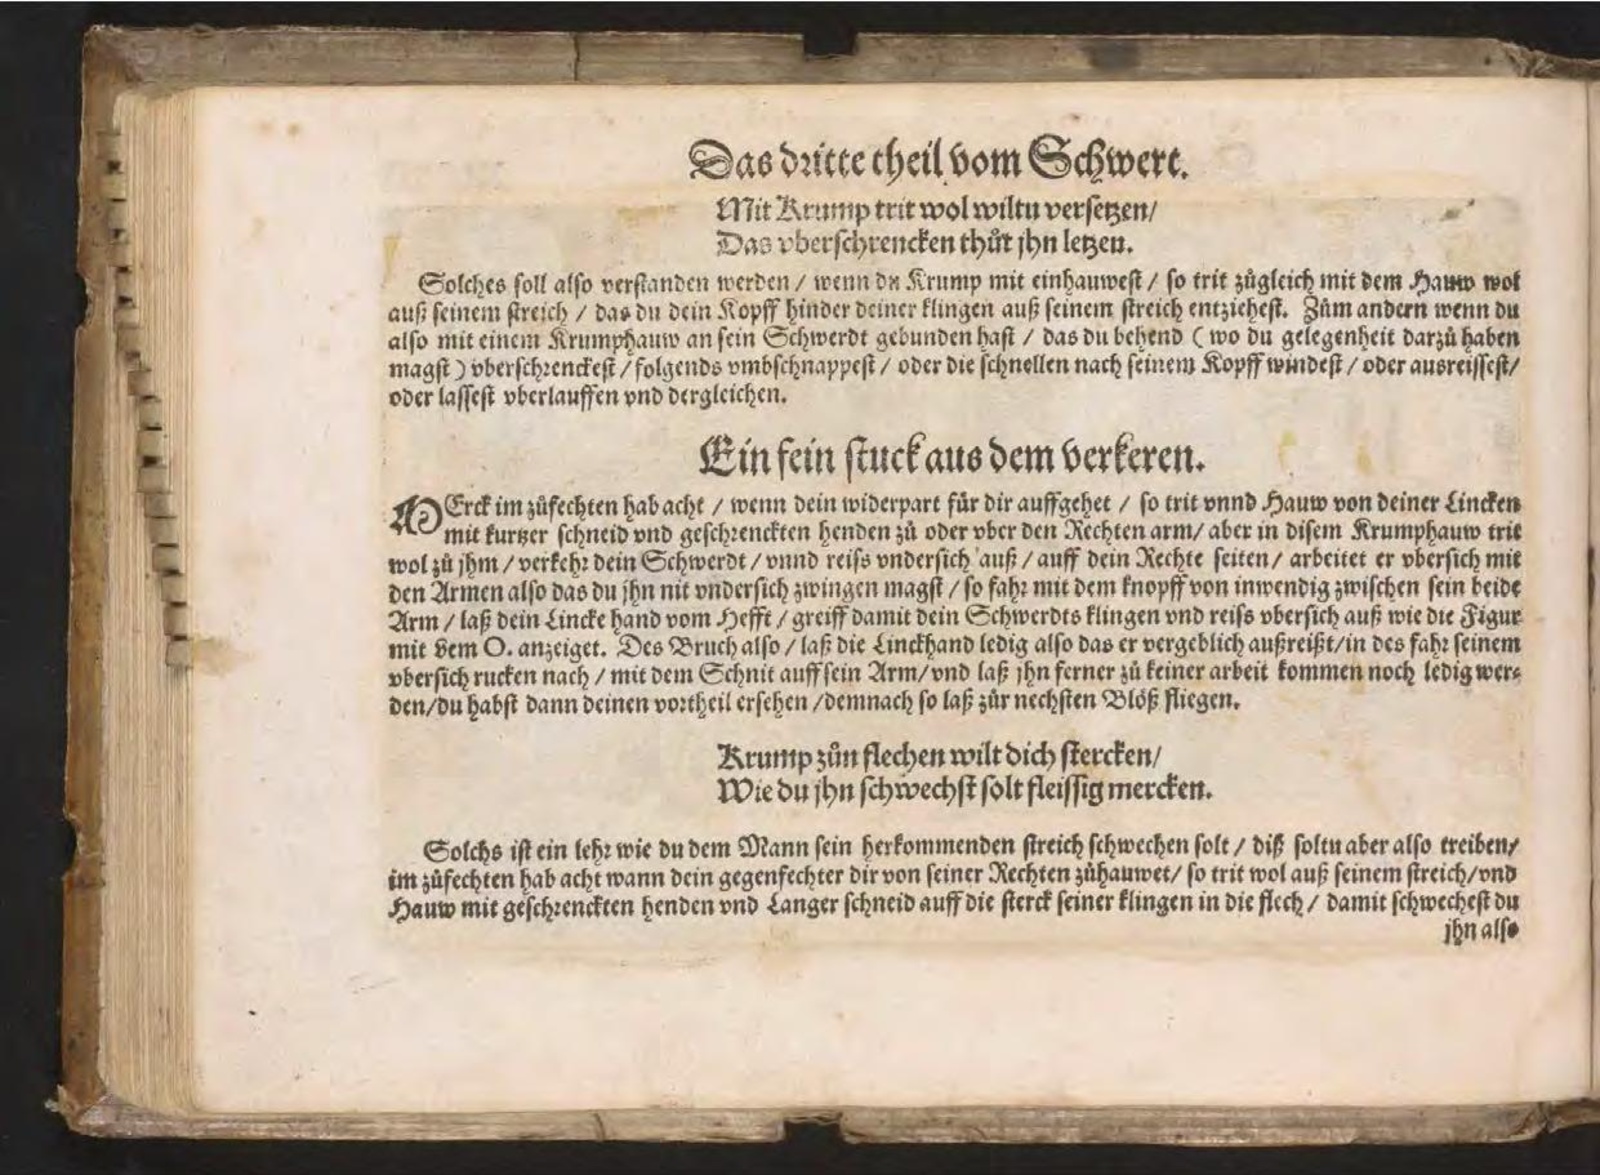 Das dritte theil vom Schwert.
Mit Krump trit wol wiltu versetzen/
Das vberschrencken thůt jhn letzen.
Solches soll also verstanden werden / wenn du Krump mit einhauwest / so trit zůgleich mit dem Hauw wol
auß seinem streich / das du dein Kopff hinder deiner klingen auß seinem streich entziehest. Zům andern wenn du
also mit einem Krumphauw an sein Schwerdt gebunden hast / das du behend ( wo du gelegenheit darzů haben
magst ) vberschrenckest / folgends vmbschnappest / oder die schnellen nach seinem Kopff windest / oder ausreissest/
oder lassest vberlauffen vnd dergleichen.
Ein fein stuck aus dem verkeren.
MErck im zůfechten hab acht / wenn dein widerpart für dir auffgehet / so trit vnnd Hauw von deiner Lincken
mit kurtzer schneid vnd geschrenckten henden zů oder vber den Rechten arm/ aber in disem Krumphauw trit
wol zů jhm / verkehr dein Schwerdt / vnnd reiss vndersich auß / auff dein Rechte seiten/ arbeitet er vbersich mit
den Armen also das du jhn nit vndersich zwingen magst / so fahr mit dem knopff von inwendig zwischen sein beide
Arm / laß dein Lincke hand vom Hefft / greiff damit dein Schwerdts klingen vnd reiss vbersich auß wie die Figur
mit dem O. anzeiget. Des Bruch also / laß die Linckhand ledig also das er vergeblich außreißt/in des fahr seinem
vbersich rucken nach / mit dem Schnit auff sein Arm/vnd laß jhn ferner zů keiner arbeit kommen noch ledig wer⸗
den/du habst dann deinen vortheil ersehen /demnach so laß zůr nechsten Blöß fliegen.
Krump zůn flechen wilt dich stercken/
Wie du jhn schwechst solt fleissig mercken.
Solchs ist ein lehr wie du dem Mann sein herkommenden streich schwechen solt / diß soltu aber also treiben/
im zůfechten hab acht wann dein gegenfechter dir von seiner Rechten zůhauwet/ so trit wol auß seinem streich/vnd
Hauw mit geschrenckten henden vnd Langer schneid auff die sterck seiner klingen in die flech / damit schwechest du
jhn also